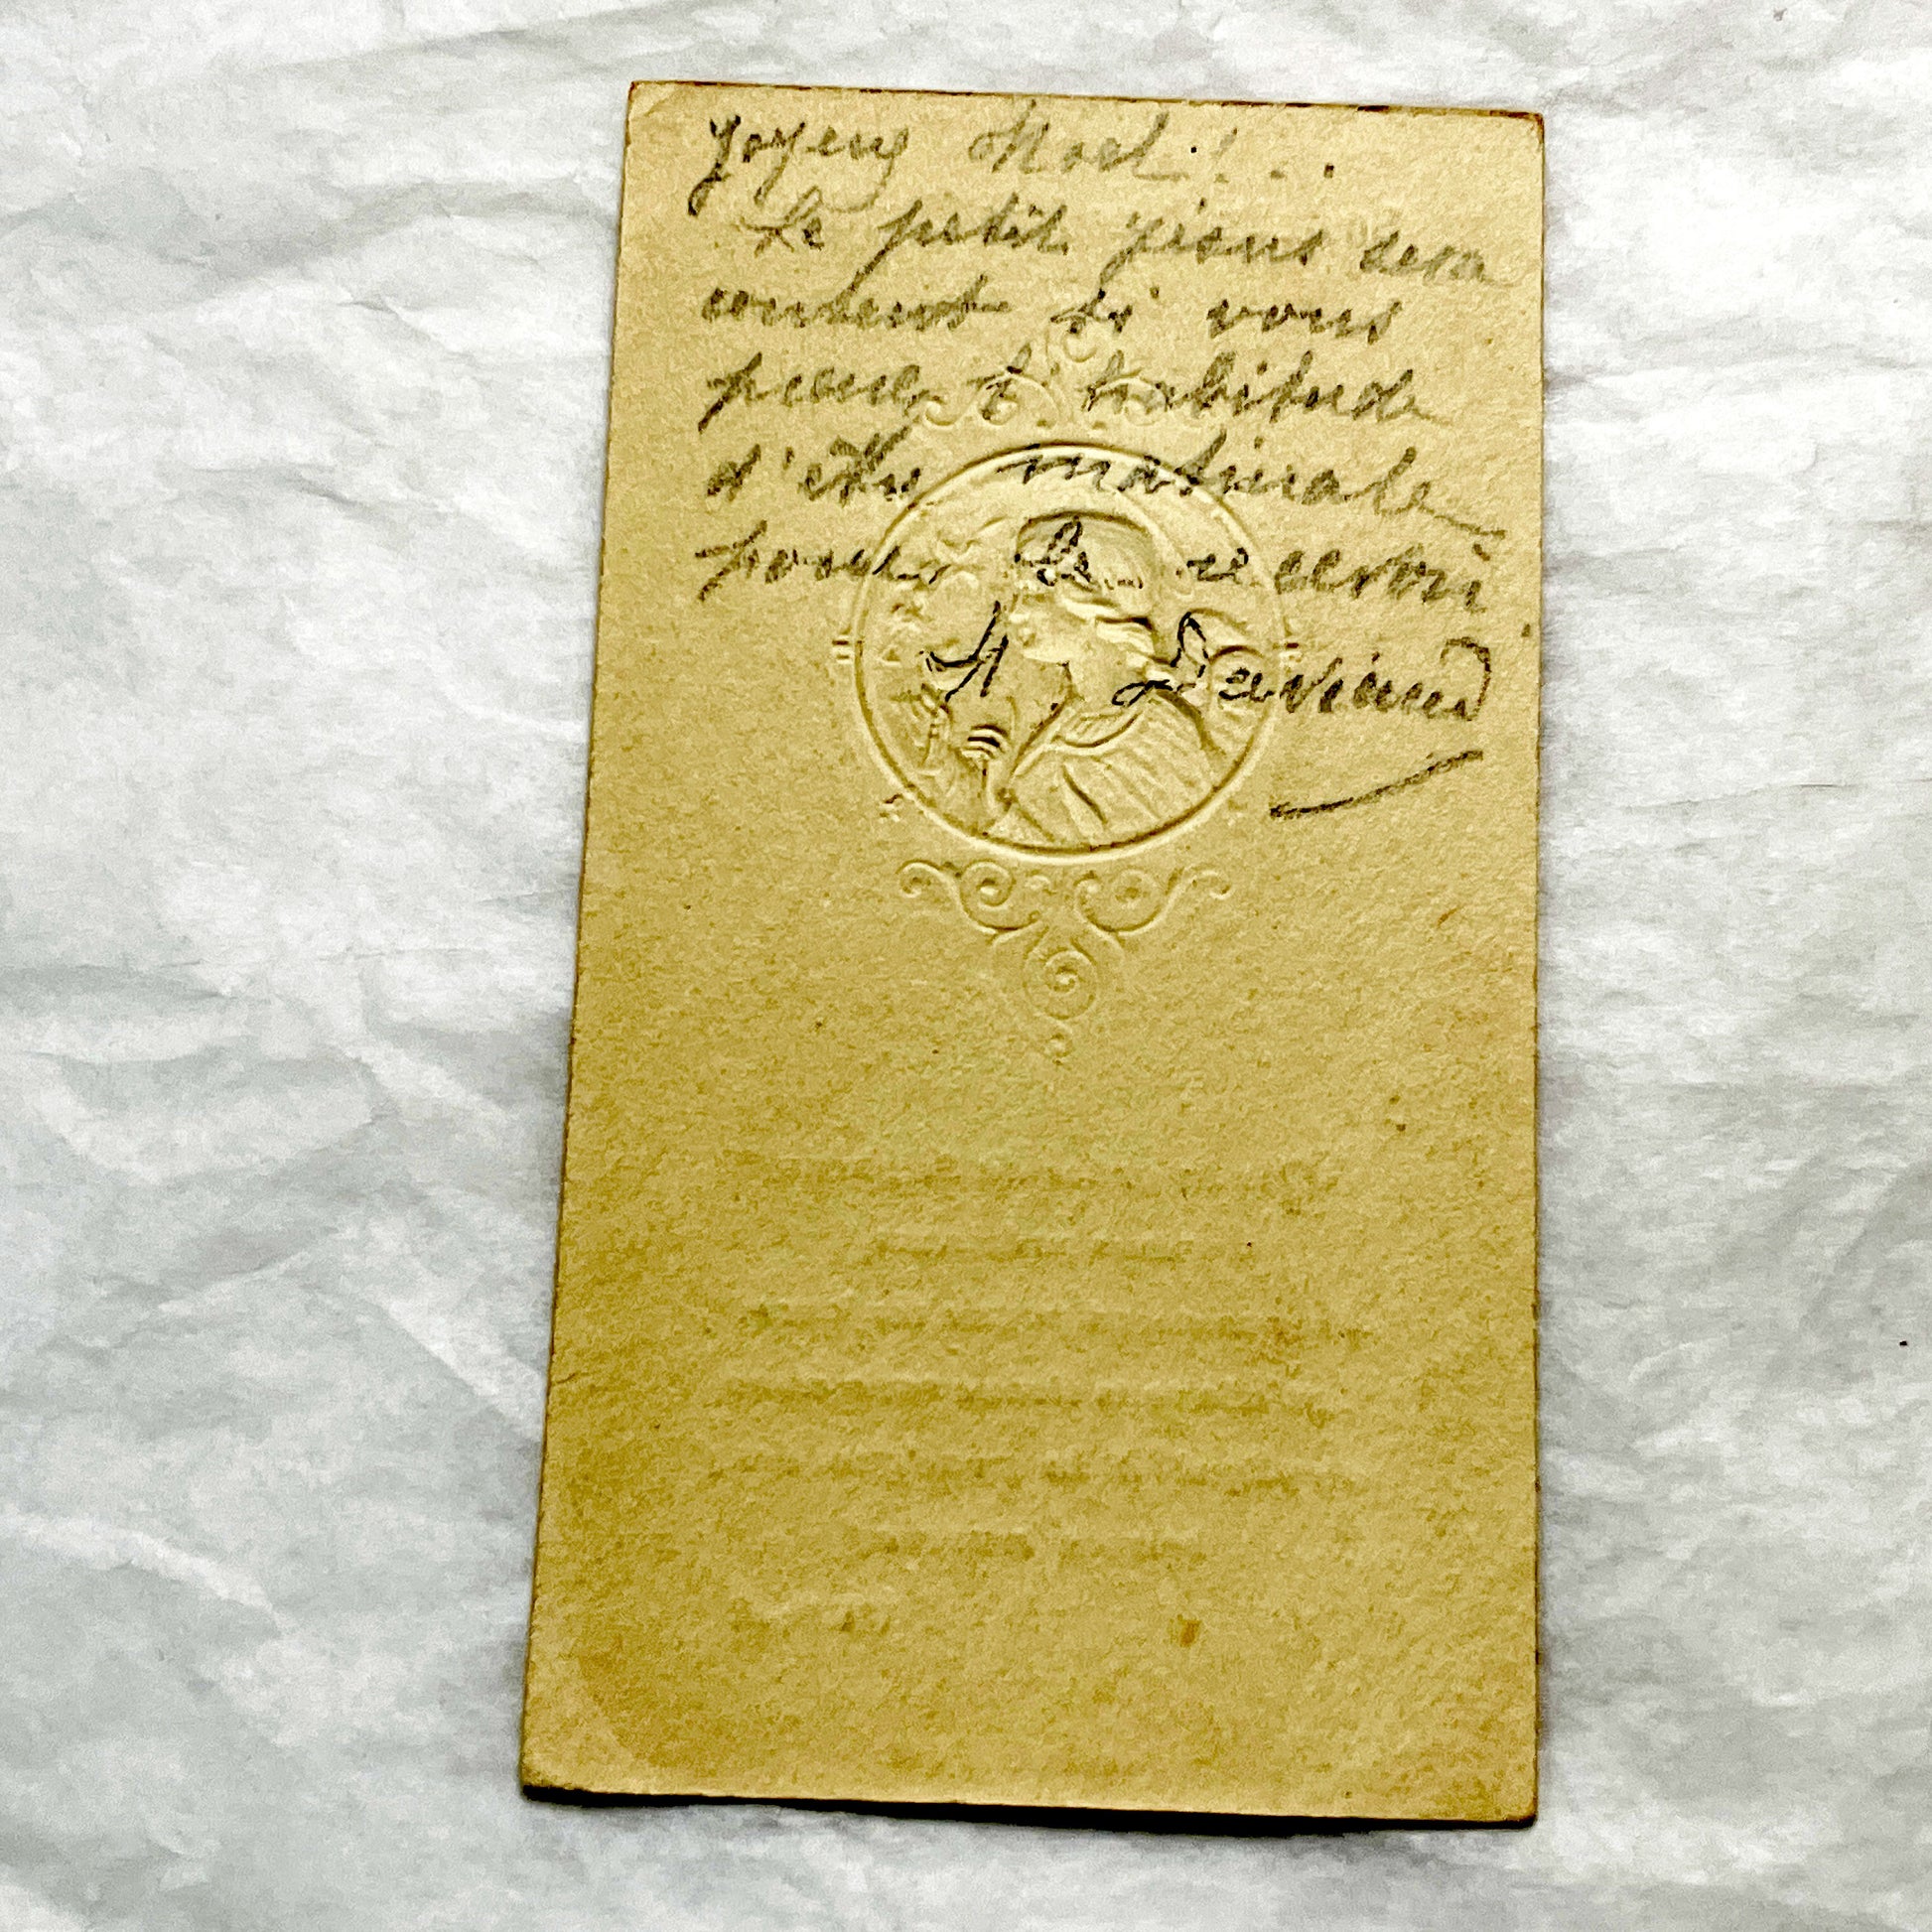 Joyeux Noel ! . .
Le petit Jésus sera
content si vous
prenez l'habitude
d'être matinale
pour le recevoir
A Laviaud